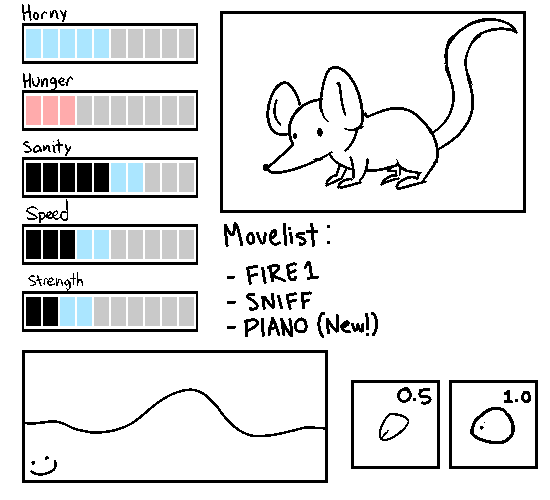 Horny
Hunger
Sanity
Speed
Strength
Movelist:
- FIRE 1
- SNIFF
- PIANO (New!)
0.5
1.0